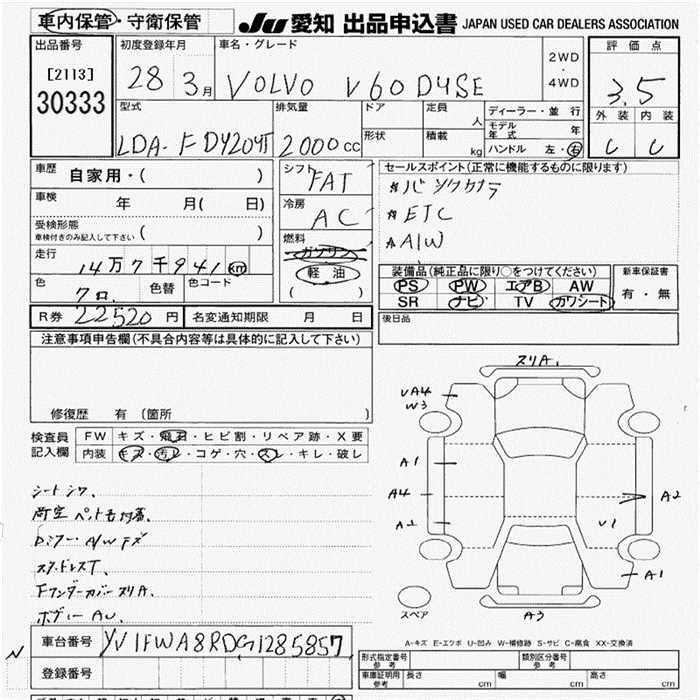 車内保管・守衛保管 JU 愛知 出品申込書 JAPAN USED CAR DEALERS ASSOCIATION
出品番号 初度登録年月 車名・グレード 2WD・4WD 評価点
[2113] 28 3月 VOLVO V60 D4SE 3.5
30333
型式 排気量 ドア 定員 人 ディーラー・並行 外装 内装
LDA-FD4204T 2000cc 形状 積載 kg モデル年式 年
ハンドル 左・右 C C
車歴 自家用・( ) シフト FAT セールスポイント(正常に機能するものに限ります)
車検 年 月( 日) 冷房 AC
ETC
受検形態 車検付きのみ記入して下さい ( ) 燃料 ガソリン A/W
走行 14万7千941km 軽油 装備品(純正品に限り○をつけてください) 新車保証書
色 クロ 色替 色コード ( ) PS PW エアB AW 有・無
SR ナビ TV カワシート
R券 22520円 名変通知期限 月 日 後日品
注意事項申告欄(不具合内容等は具体的に記入して下さい)
修復歴 有 (箇所 )
検査員記入欄 FW キズ・飛石・ヒビ割・リペア跡・X要
内装 キズ・汚レ・コゲ・穴・スレ・キレ・破レ
シートシワ、
荷室ペット毛付着、
Dミラー・A/Wキズ
スタッドレスT、
Fアンダーカバースリ A、
ボディー AU、
スリA、
UA4
W3
A1
A4 A2
A2 U1
A1
スペア A3
車台番号 YV1FWA8RDG1285857
登録番号
A-キズ E-エクボ U-凹み W-補修跡 S-サビ C-腐食 XX-交換済
形式指定番号 参考 類別区分番号 参考
車庫証明用 参考 長さ cm 幅 cm 高さ cm